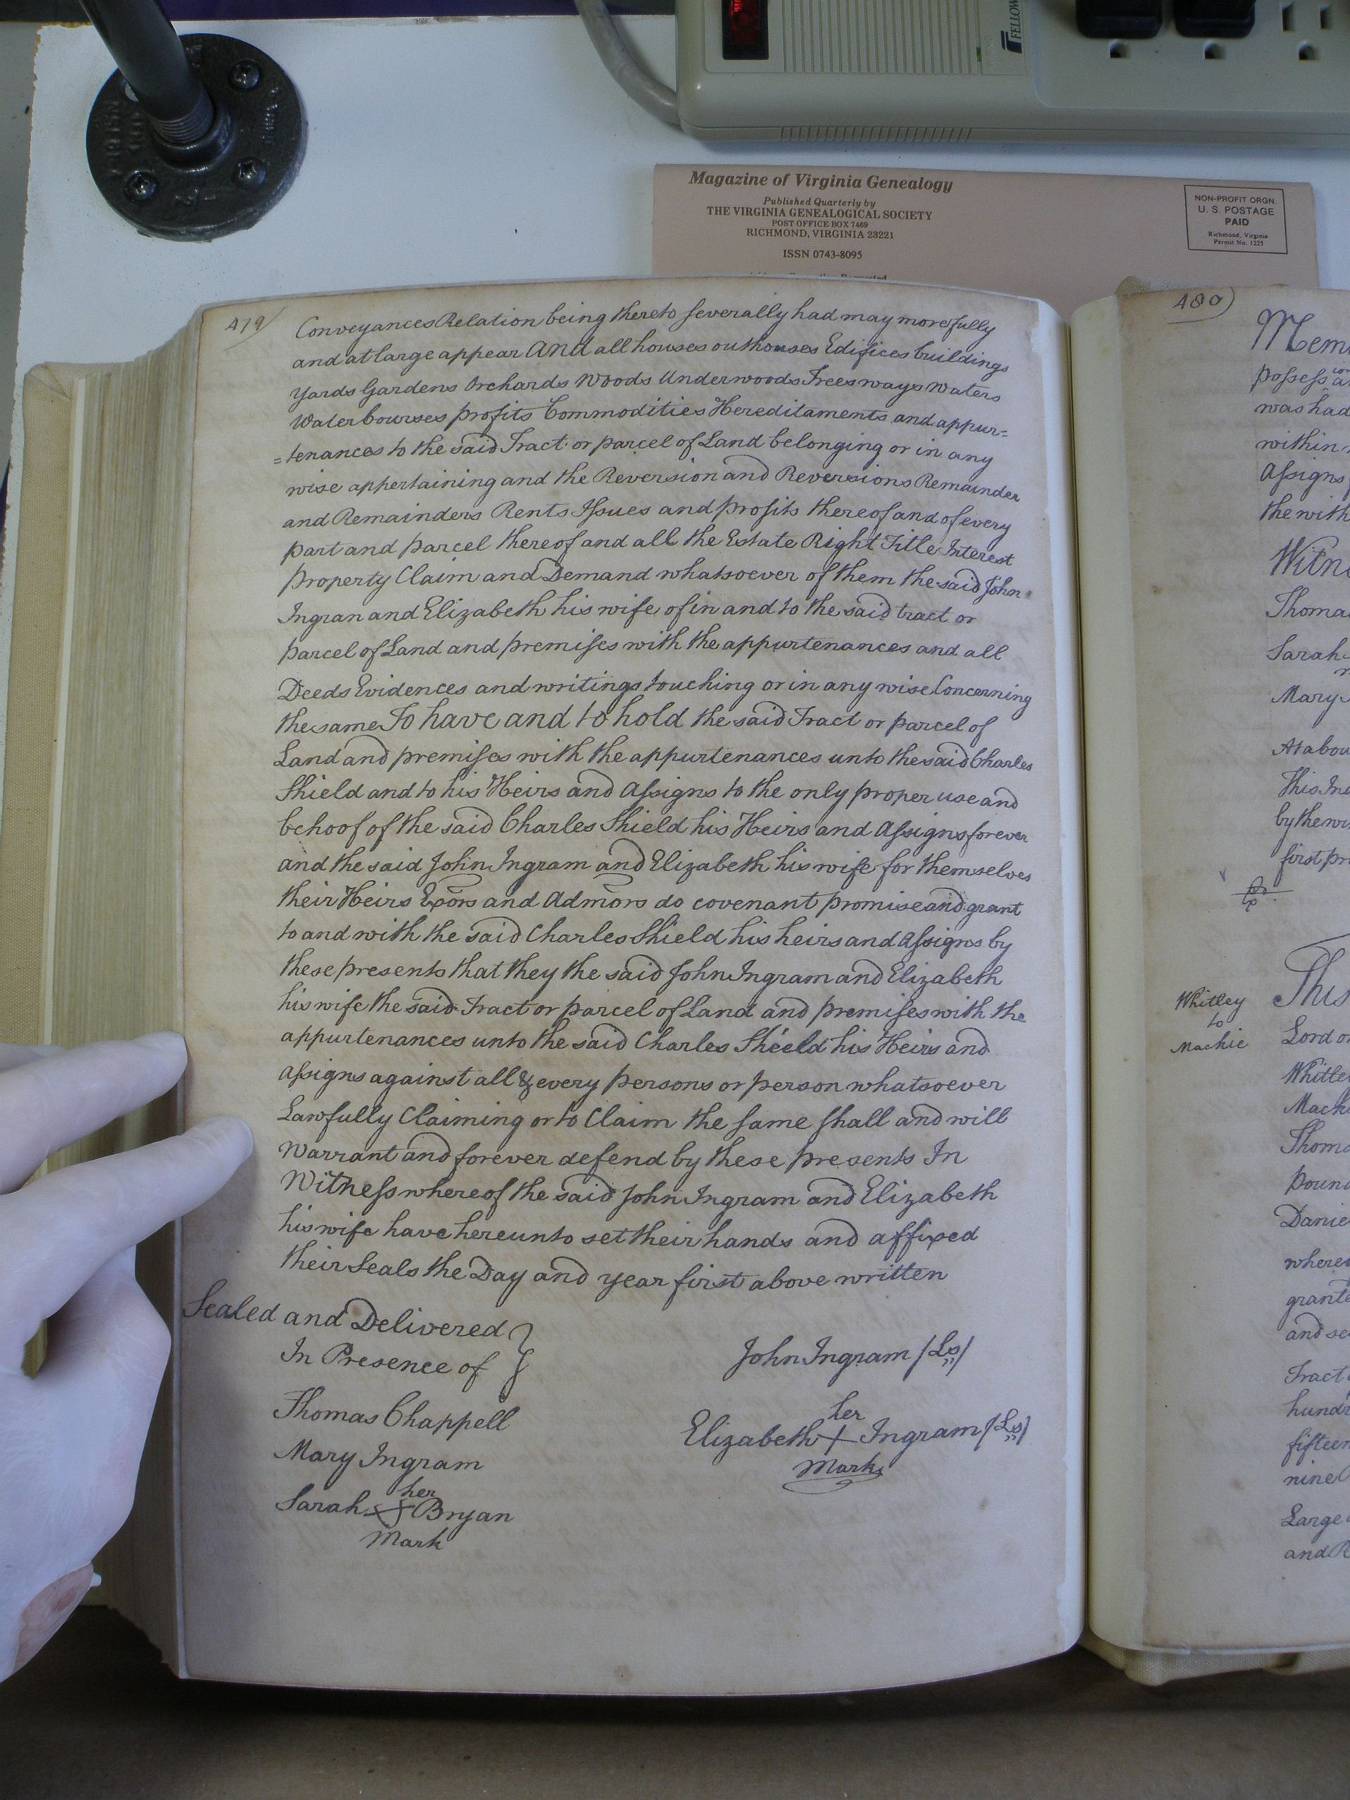 FELLOW
Magazine of Virginia Genealogy
Published Quarterly by
THE VIRGINIA GENEALOGICAL SOCIETY
POST OFFICE BOX 7469
RICHMOND, VIRGINIA 23221
ISSN 0743-8095
NON-PROFIT ORGN.
U. S. POSTAGE
PAID
Richmond, Virginia
Permit No. 1225
479
Conveyances Relation being thereto severally had may more fully
and at large appear And all houses outhouses Edifices buildings
Yards Gardens Orchards Woods Underwoods Trees ways Waters
Water Courses profits Commodities Hereditaments and appur=
=tenances to the said Tract or parcel of Land belonging or in any
wise appertaining and the Reversion and Reversions Remainder
and Remainders Rents Issues and profits thereof and of every
part and parcel thereof and all the Estate Right Title Interest
property Claim and Demand whatsoever of them the said John
Ingran and Elizabeth his wife of in and to the said tract or
parcel of Land and premises with the appurtenances and all
Deeds Evidences and writings touching or in any wise Concerning
the same To have and to hold the said Tract or parcel of
Land and premises with the appurtenances unto the said Charles
Shield and to his Heirs and Assigns to the only proper use and
behoof of the said Charles Shield his Heirs and Assigns forever
and the said John Ingram and Elizabeth his wife for themselves
their Heirs Exors and Admors do covenant promise and grant
to and with the said Charles Shield his heirs and Assigns by
these presents that they the said John Ingram and Elizabeth
his wife the said Tract or parcel of Land and premises with the
appurtenances unto the said Charles Sheeld his Heirs and
assigns against all & every persons or person whatsoever
Lawfully Claiming or to Claim the same shall and will
Warrant and forever defend by these presents In
Witness whereof the said John Ingram and Elizabeth
his wife have hereunto set their hands and affixed
their Seals the Day and year first above written
Sealed and Delivered }
In Presence of
John Ingram (Ls)
Thomas Chappell
her
Elizabeth + Ingram (Ls)
Mark
Mary Ingram
her
Sarah Bryan
Mark
480
Mem
possess
was had
within
Assigns
the with
Witn
Thoma
Sarah
Mary
At a bou
This In
by the wi
first pr
Whitley
to
Mackie
This
Lord o
Whitle
Mack
Thoma
pound
Danie
where
grante
and se
Tract
hund
fifteen
nine
Large
and R